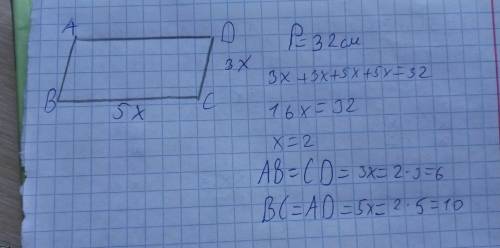 A
D
3x
B
5x
C
P=32см
3x+3x+5x+5x=32
16x=32
x=2
AB=CD=3x=2·3=6
BC=AD=5x=2·5=10